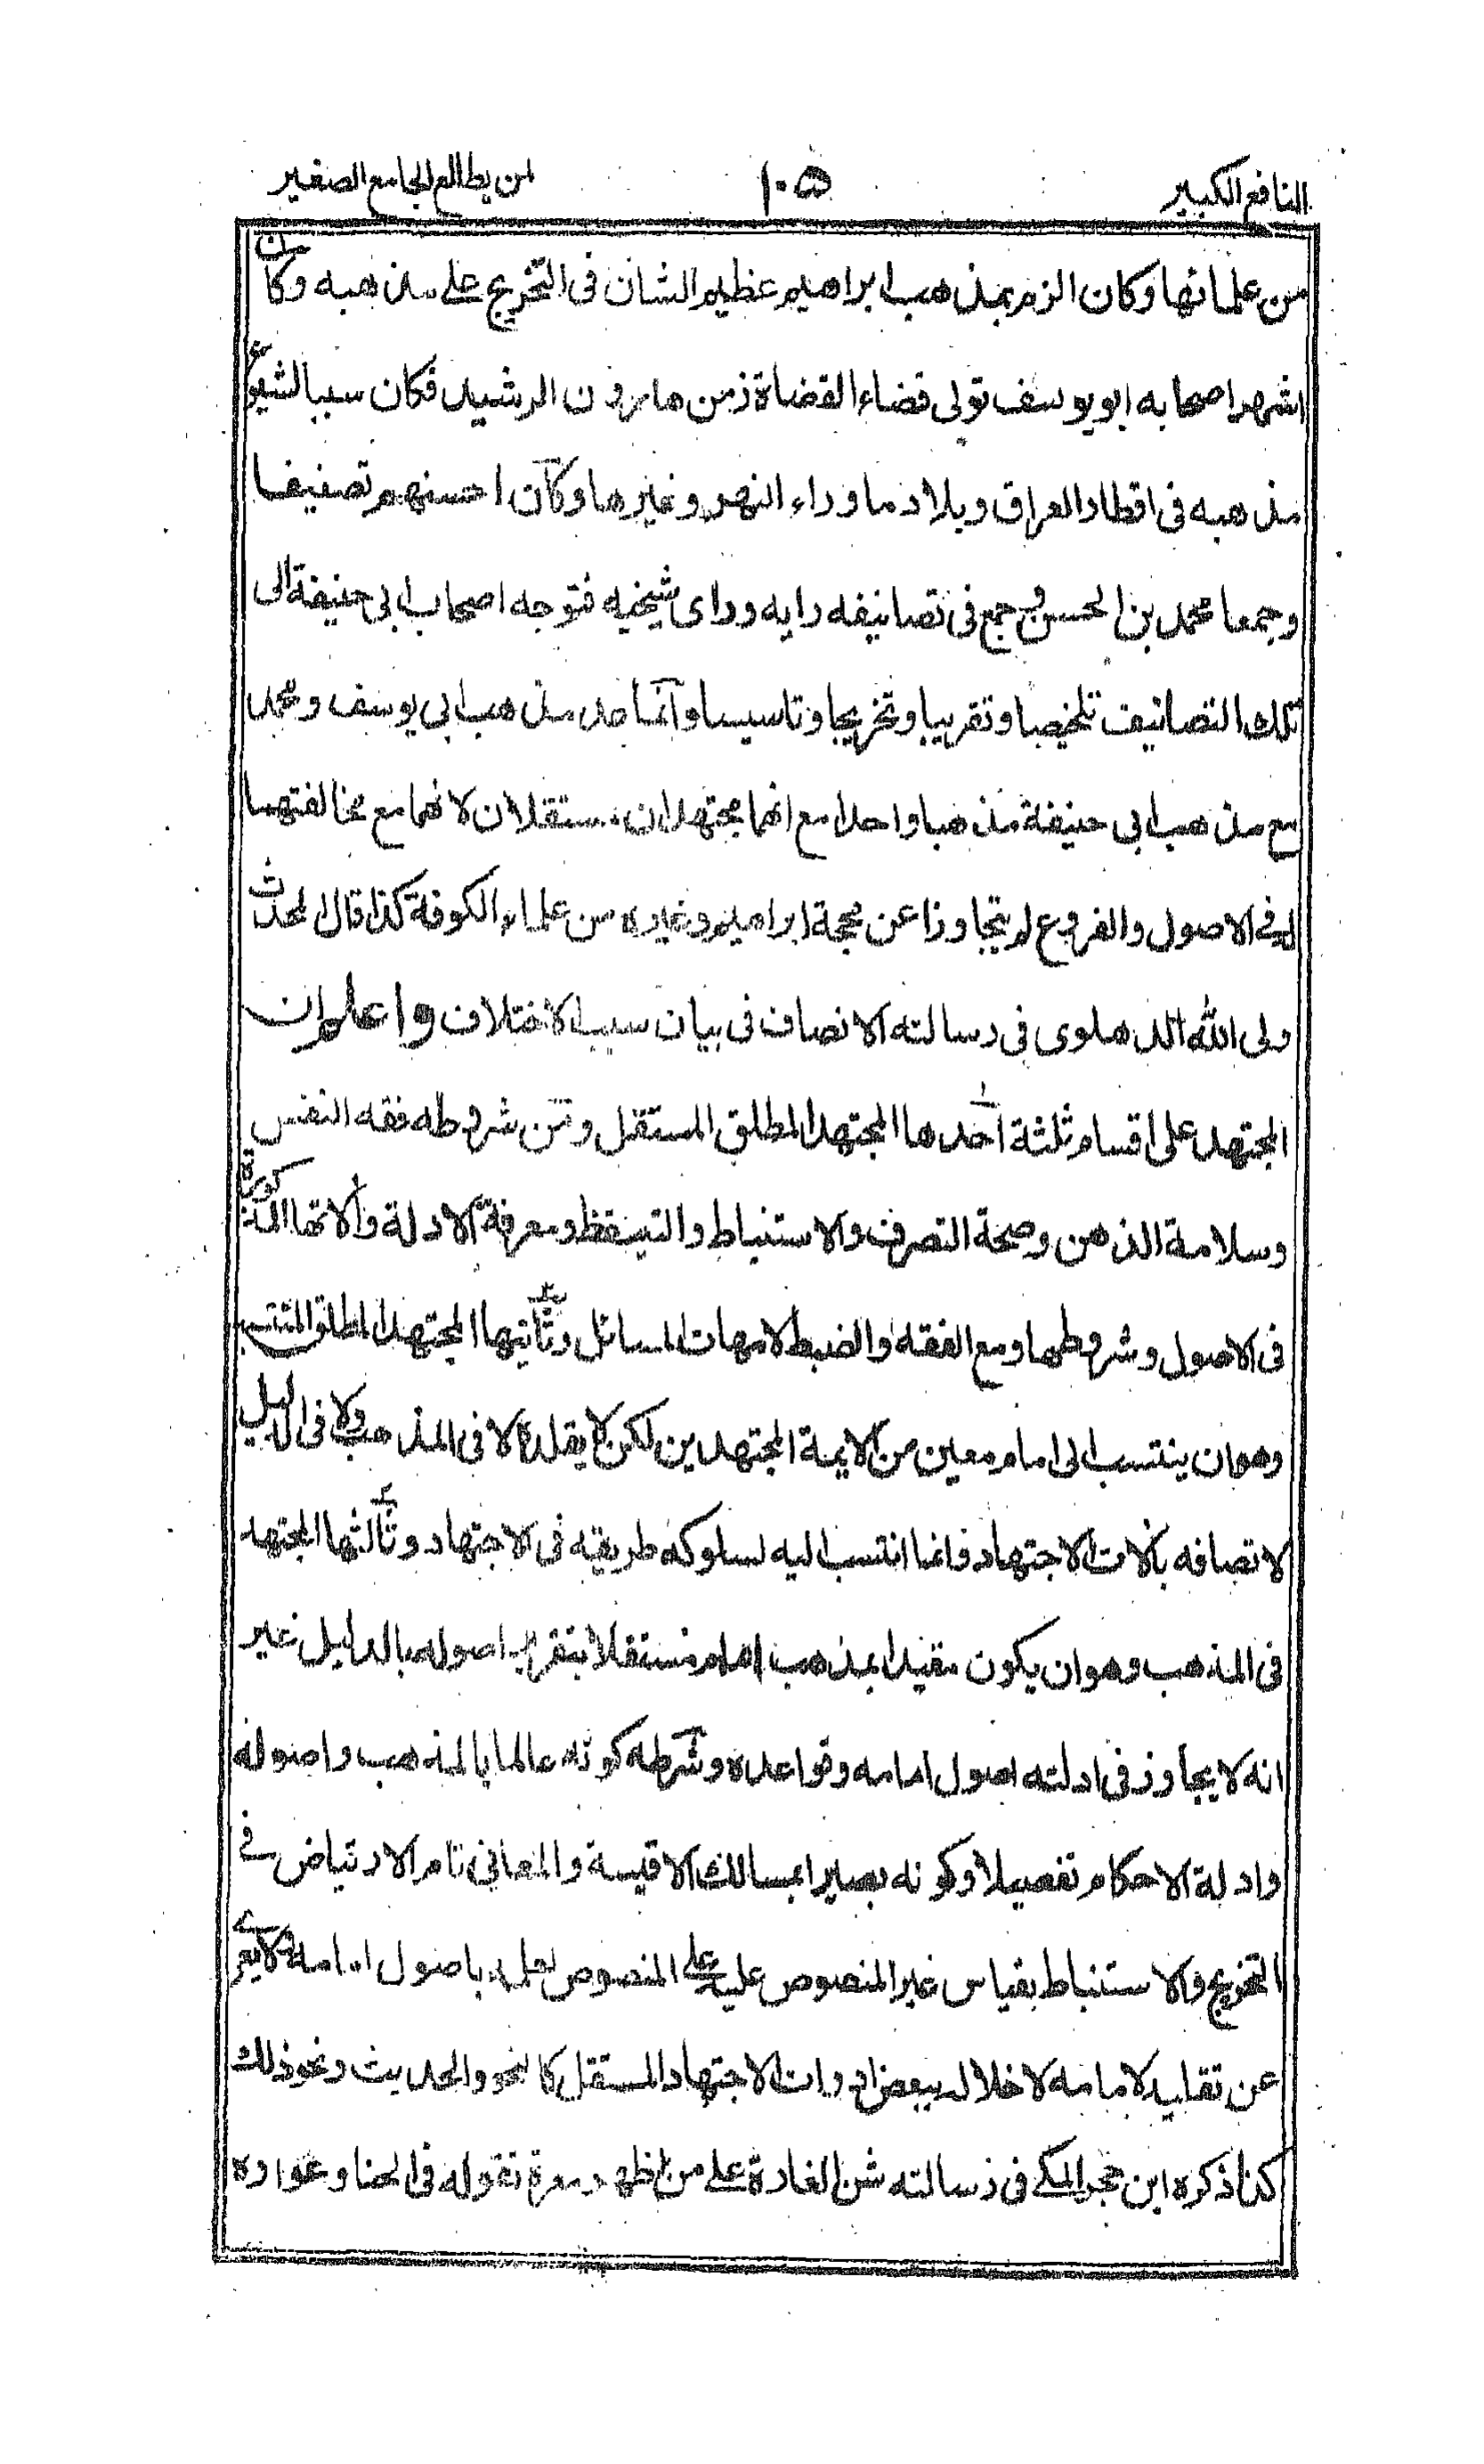 النافع الكبير ١٠٥ لمن يطالع الجامع الصغير
من علمائها وكان الزم بمذهب ابراهيم عظيم الشان فى التخريج على مذهبه وكان
اشهر اصحابه ابو يوسف تولى قضاء القضاة زمن هارون الرشيد فكان سببا لشيوع
مذهبه فى اقطار العراق وبلاد ما وراء النهر وغيرها وكان احسنهم تصنيفا
وجمعا محمد بن الحسن فجمع فى تصانيفه رايه وراى شيخيه فتوجه اصحاب ابى حنيفة الى
تلك التصانيف تلخيصا وتقريبا وتخريجا وتاسيسا وانما عد مذهب ابى يوسف ومحمد
مع مذهب ابى حنيفة مذهبا واحدا مع انهما مجتهدان مستقلان لانهما مع مخالفتهما
له فى الاصول والفروع لم يتجاوزا عن محجة ابراهيم وغيره من علماء الكوفة كذا قال المحدث
ولى الله الدهلوى فى رسالته الانصاف فى بيان سبب الاختلاف واعلم ان
المجتهد على اقسام ثلثة احدها المجتهد المطلق المستقل ومن شروطه فقه النفس
وسلامة الذهن وصحة التصرف والاستنباط والتيقظ ومعرفة الادلة والاتها المذكورة
فى الاصول وشروطها ومع الفقه والضبط لامهات المسائل وثانيها المجتهد المطلق المنتسب
وهو ان ينتسب الى امام معين من الايمة المجتهدين لكن لا يقلده لا فى المذهب ولا فى الدليل
لاتصافه بالات الاجتهاد فانما انتسب اليه لسلوكه طريقه فى الاجتهاد وثالثها المجتهد
فى المذهب وهو ان يكون مقيدا بمذهب امام مستقلا بتقرير اصوله بالدليل غير
انه لا يجاوز فى ادلته اصول امامه وقواعده وشرطه كونه عالما بالمذهب واصوله
وادلة الاحكام تفصيلا وكونه بصيرا بمسالك الاقيسة والمعانى تام الارتياض فى
التخريج والاستنباط بقياس غير المنصوص عليه على المنصوص لعلمه باصول امامه ولا يعرى
عن تقليد لامامه لاخلاله ببعض ادوات الاجتهاد المستقل كالنحو والحديث ونحو ذلك
كذا ذكره ابن حجر المكى فى رسالته شن الغارة على من اظهر معرة تقوله فى الحنا وعواره